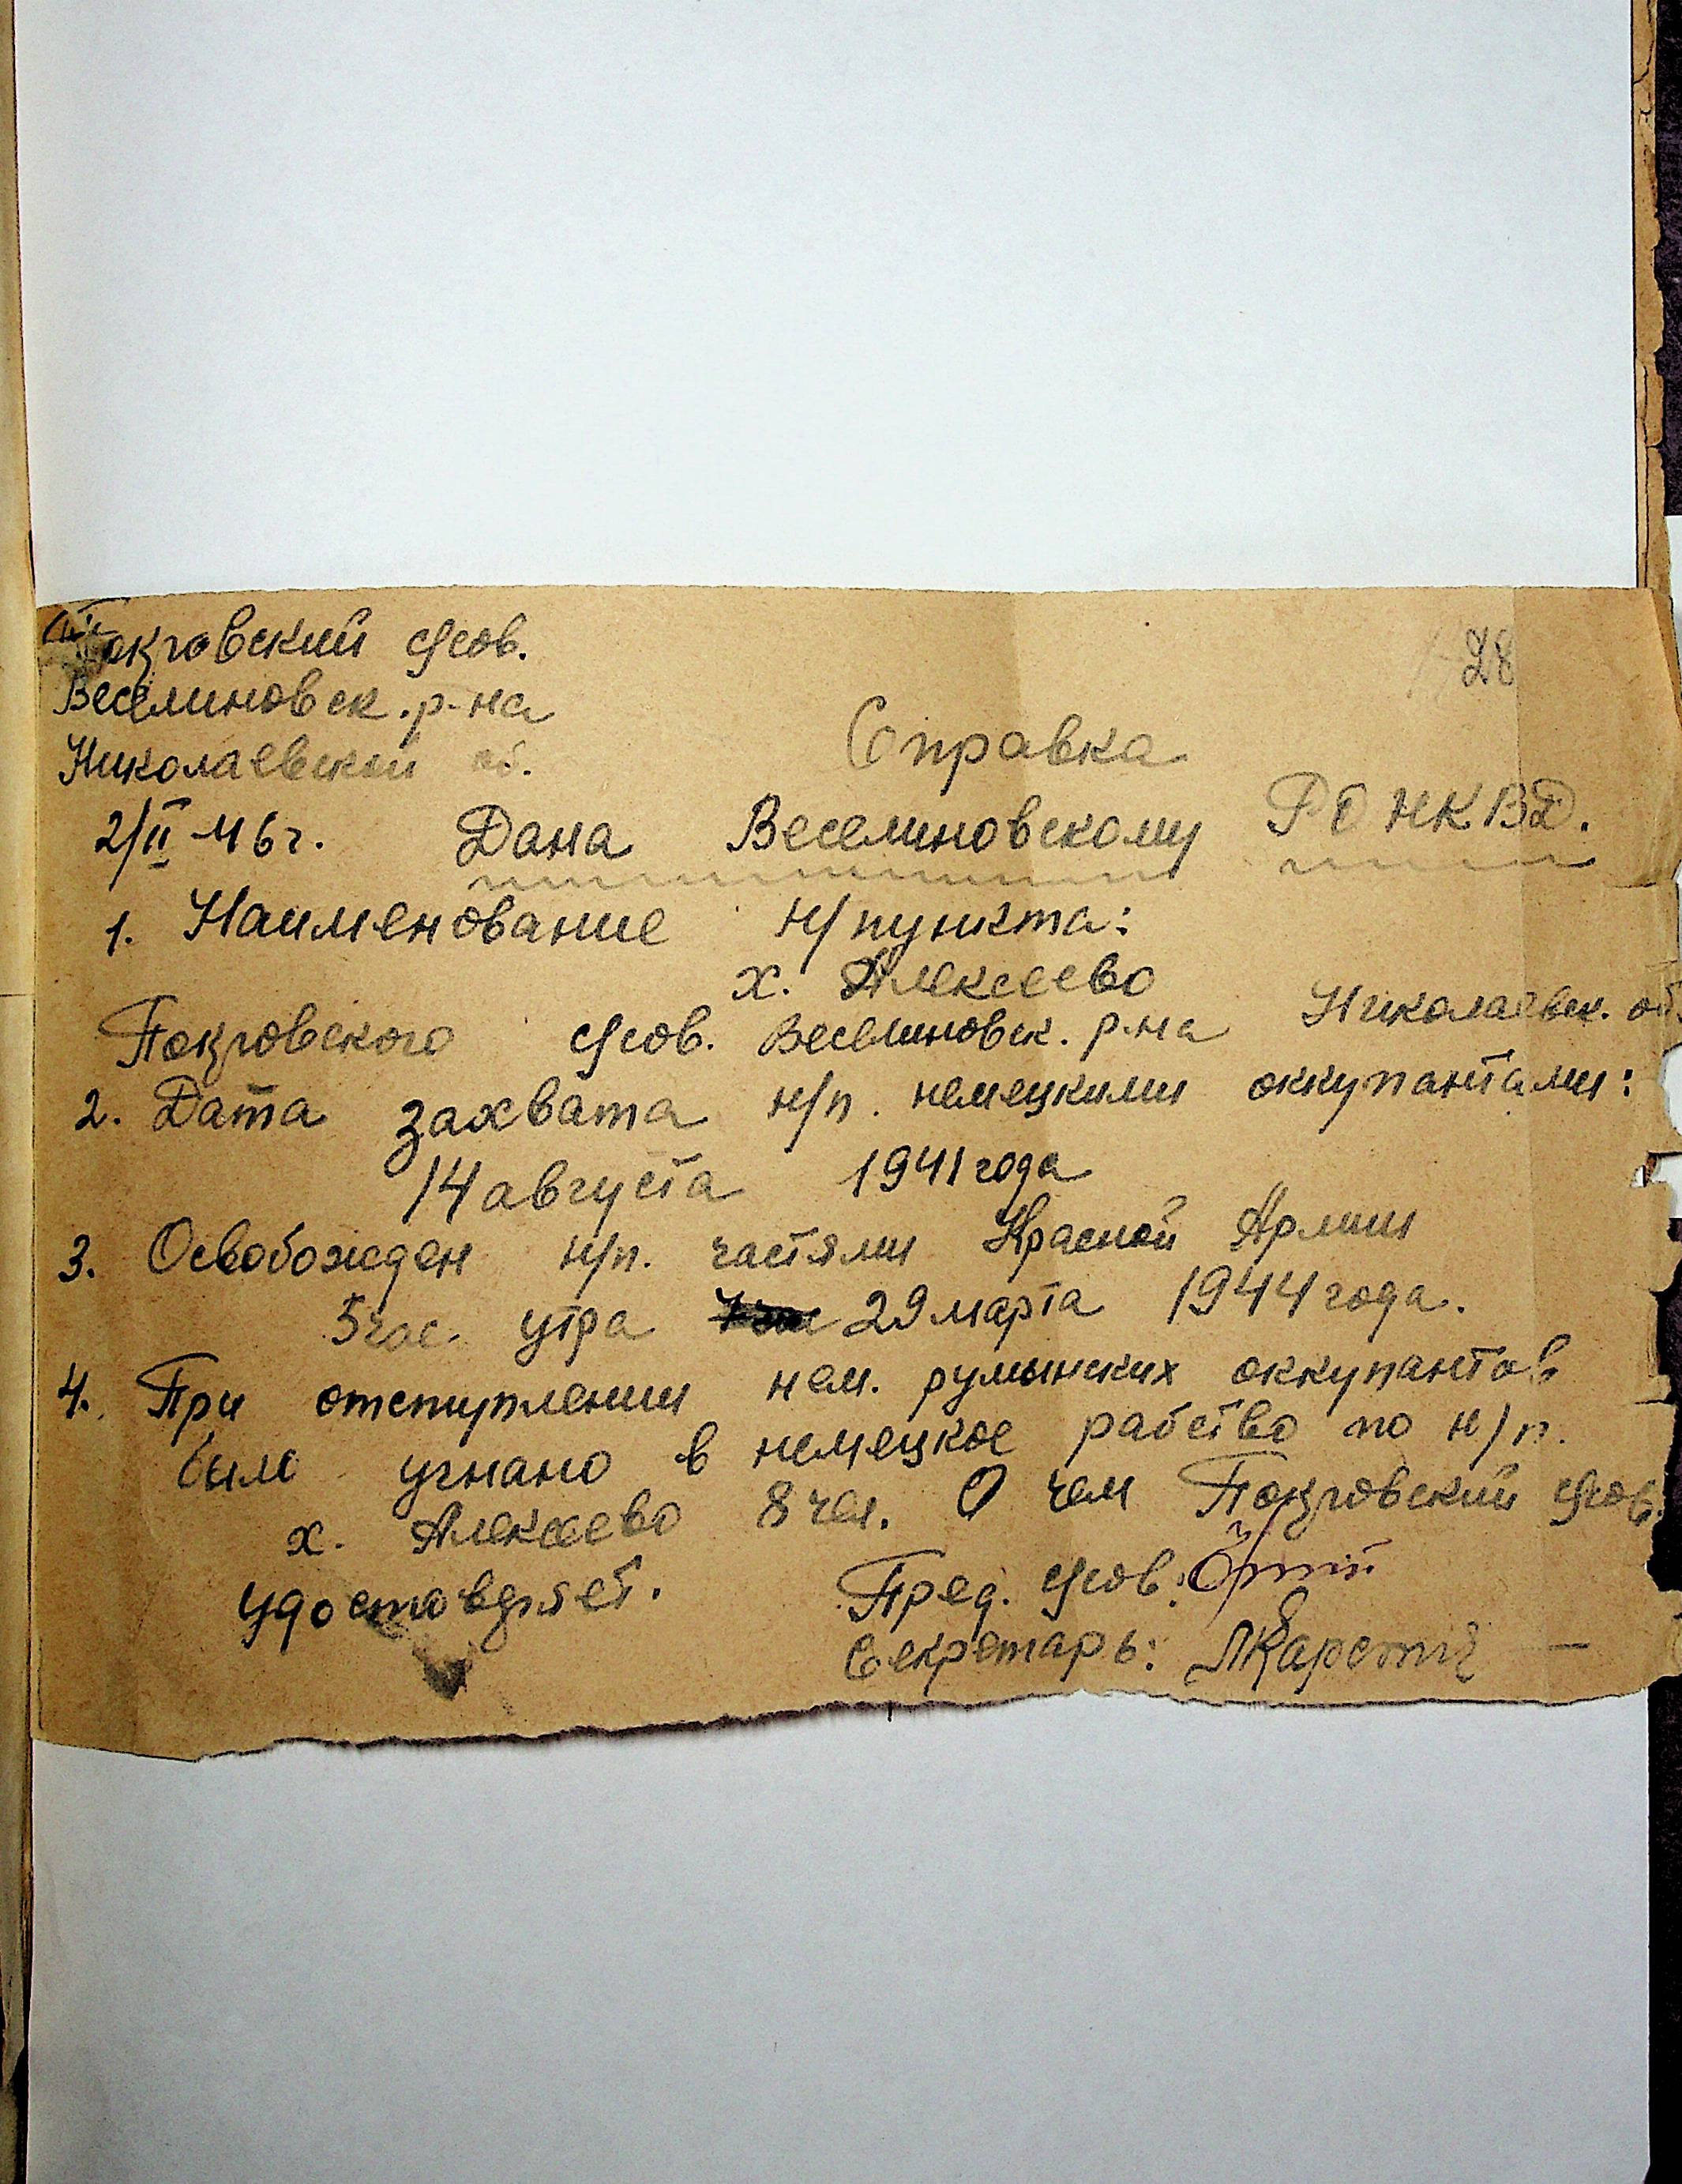 Покровский с/сов.
28
Веселиновск. р-на
Николаевской об.
Справка
2/II-46 г. Дана Веселиновскому РО НКВД.
1. Наименование н/пункта:
х. Алексеево
Покровского с/сов. Веселиновск. р-на Николаевск. об.
2. Дата захвата н/п. немецкими оккупантами:
14 августа 1941 года
3. Освобожден н/п. частями Красной Армии
5 час. утра 29 марта 1944 года.
4. При отступлении нем. румынских оккупантов
было угнано в немецкое рабство по н/п.
х. Алексеево 8 чел. О чем Покровский с/сов.
удостовдряет.
Пред. с/сов.:
Секретарь: